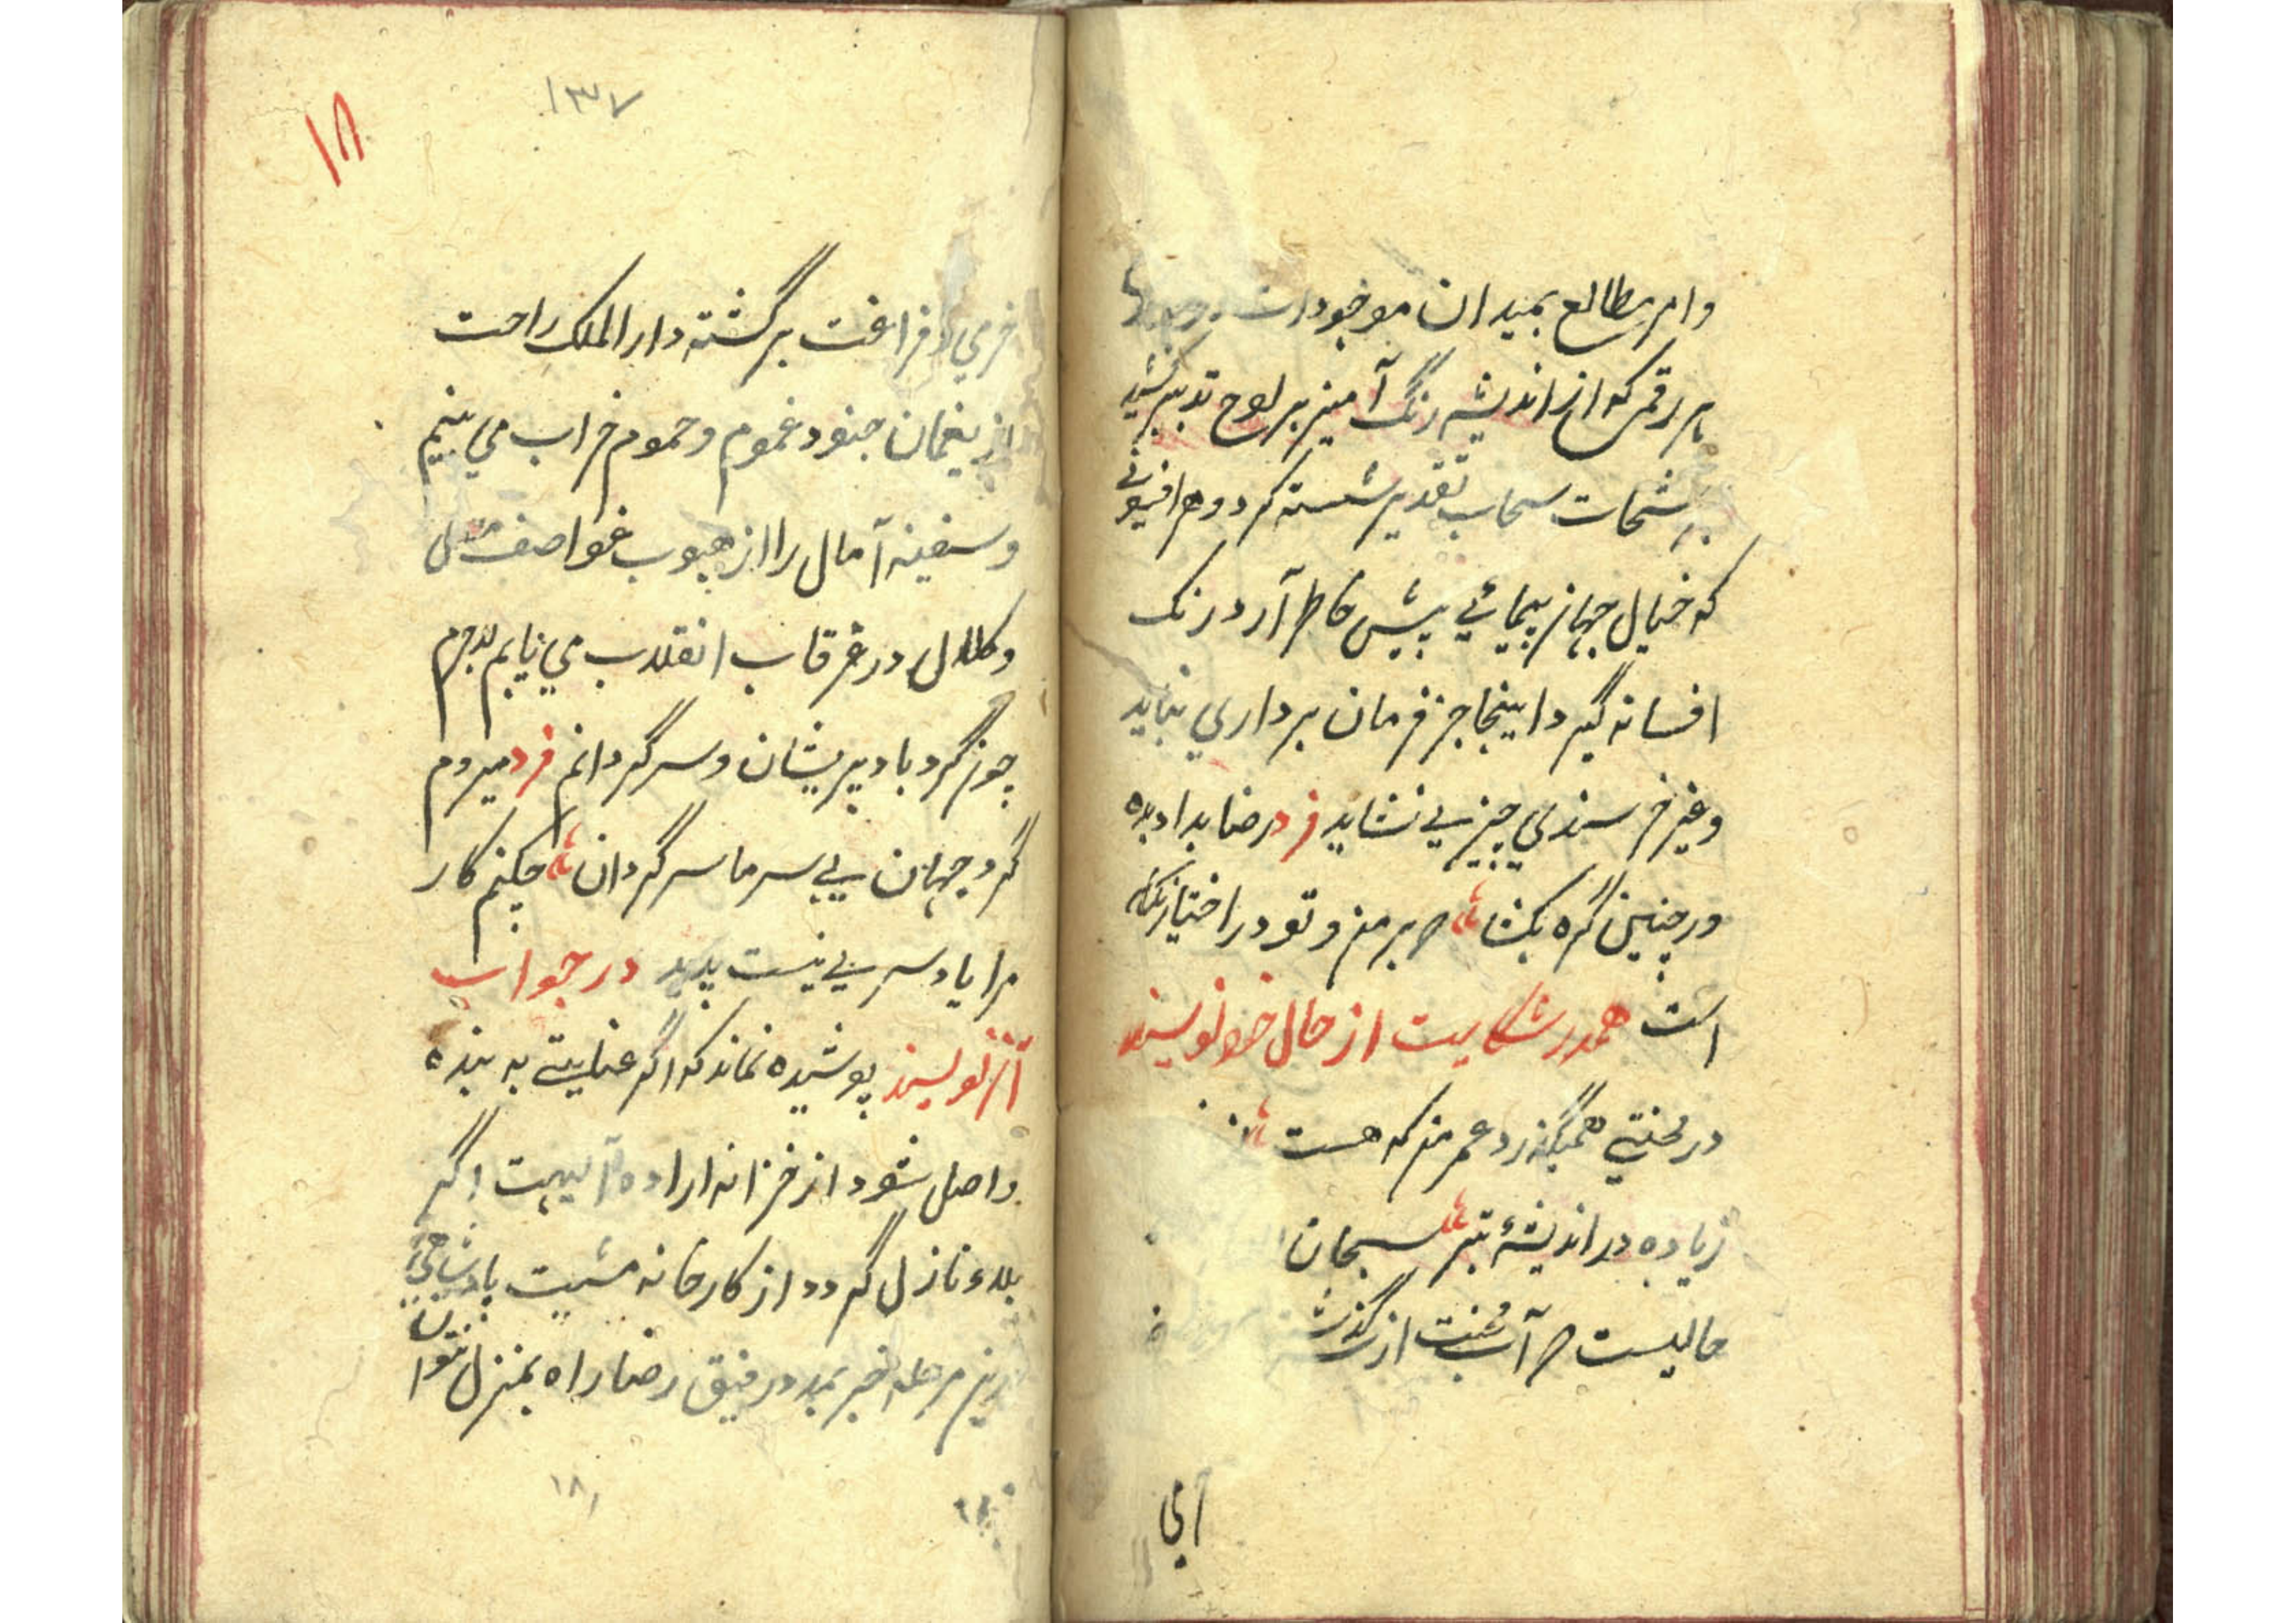 وامر مطالع بمیدان موجودات
هر رقمی که از اندیشه رنگ آمیز بر لوح تدبیر کشید
برشحات سحاب تقدیر شسته گردد و هر افسونی
که خیال جهان پیمائی پیش خاطر آرد رنگ
افسانه گیرد اینجا جز فرمان برداری نباید
و غیر خرسندی چیزی نشاید فرد رضا بداده بده
ورجبین گره بکشا که بر من و تو در اختیار نکشاده
است همدر شکایت از حال خود نویسند
در محنتی همیگذرد عمر من که هست
زیاده در اندیشهٔ تبر سبحان
حالیست که آب محنت از سر گذشت
آبی
۱۳۷
۱۸
خرمی و فراغت برگشته دار الملک راحت
از یغمان جنود غموم و حموم خراب می بینم
و سفینه آمال را از هبوب عواصف
و کلال در غرقاب انقلاب می یابم لاجرم
چون گردباد پریشان و سرگردانم فرد میروم
گرد جهان بی سر و پا سرگردان چکنم کار
مرا پا و سری نیست پدید در جواب
آن نویسند پوشیده نماند که اگر عنایتی به بنده
واصل شود از خزانه اراده الهیت اگر
بلاء نازل گردد از کارخانه مشیت پادشاهی
درین مرحله جز بمدد رفیق رضا راه بمنزل نتوان
۱۸۱